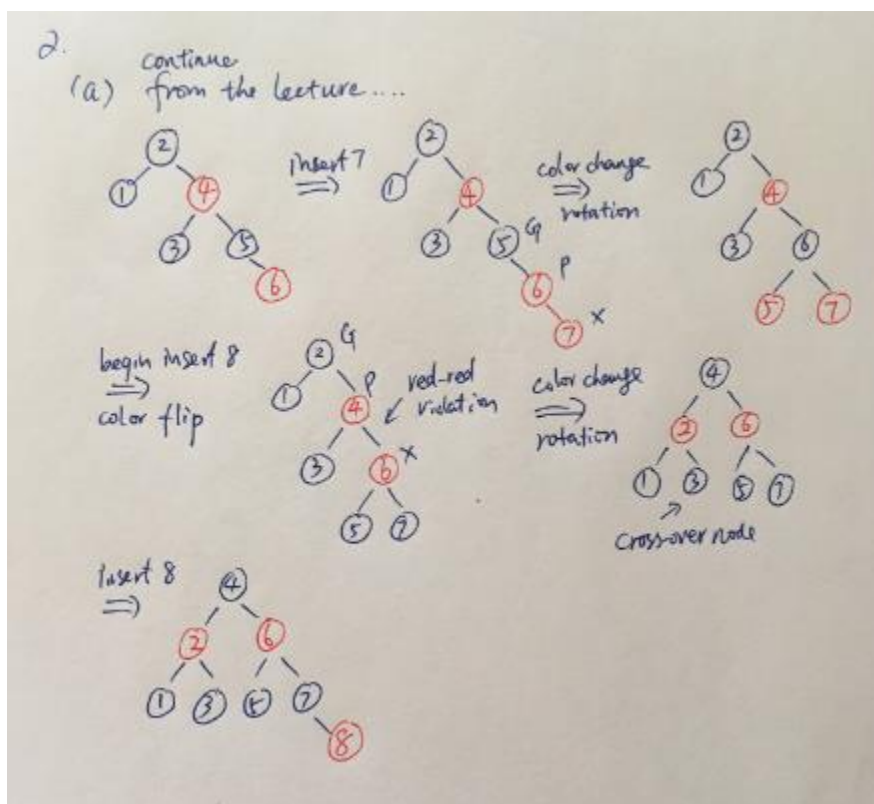 2.
continue
(a) from the lecture....
2
1 4
3 5
6
insert 7
⇒
2
1 4
3 5 G
6 P
7 x
color change
⇒
rotation
2
1 4
3 6
5 7
begin insert 8
⇒
color flip
2 G
1 4 P
3 6 x
5 7
red-red
violation
color change
⇒
rotation
4
2 6
1 3 5 7
cross-over node
insert 8
⇒
4
2 6
1 3 5 7
8